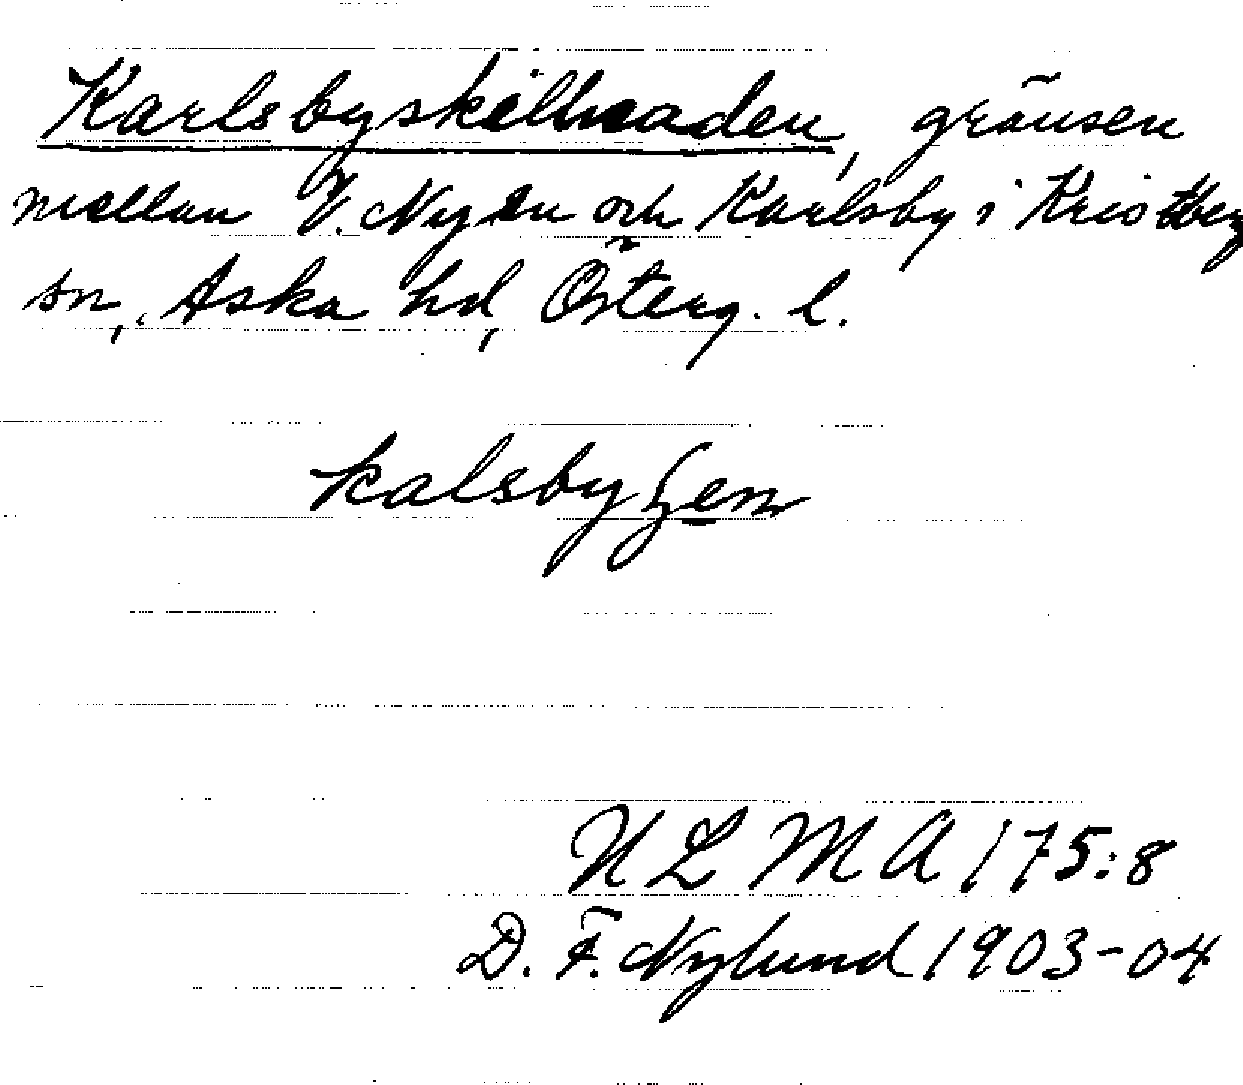 Karlsbyskillnaden, gränsen
mellan V. Nyby och Karlsby i Kristberg
sn, Aska hd, Österg. l.
kalsby
ULMA 175:8
D. F. Nylund 1903-04